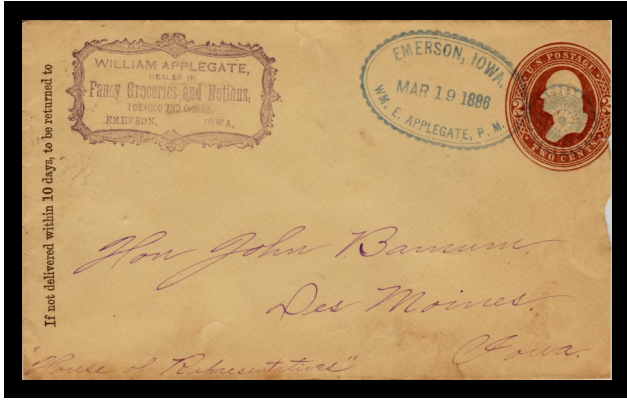 If not delivered within 10 days, to be returned to
WILLIAM APPLEGATE,
DEALER IN
Fancy Groceries and Notions,
TOBACCO AND CIGARS,
EMERSON, IOWA.
EMERSON, IOWA.
MAR 19 1886
WM. E. APPLEGATE, P. M.
U.S. POSTAGE
2 2
TWO CENTS
Hon John Barnum.
Des Moines.
Iowa.
"House of Representatives"